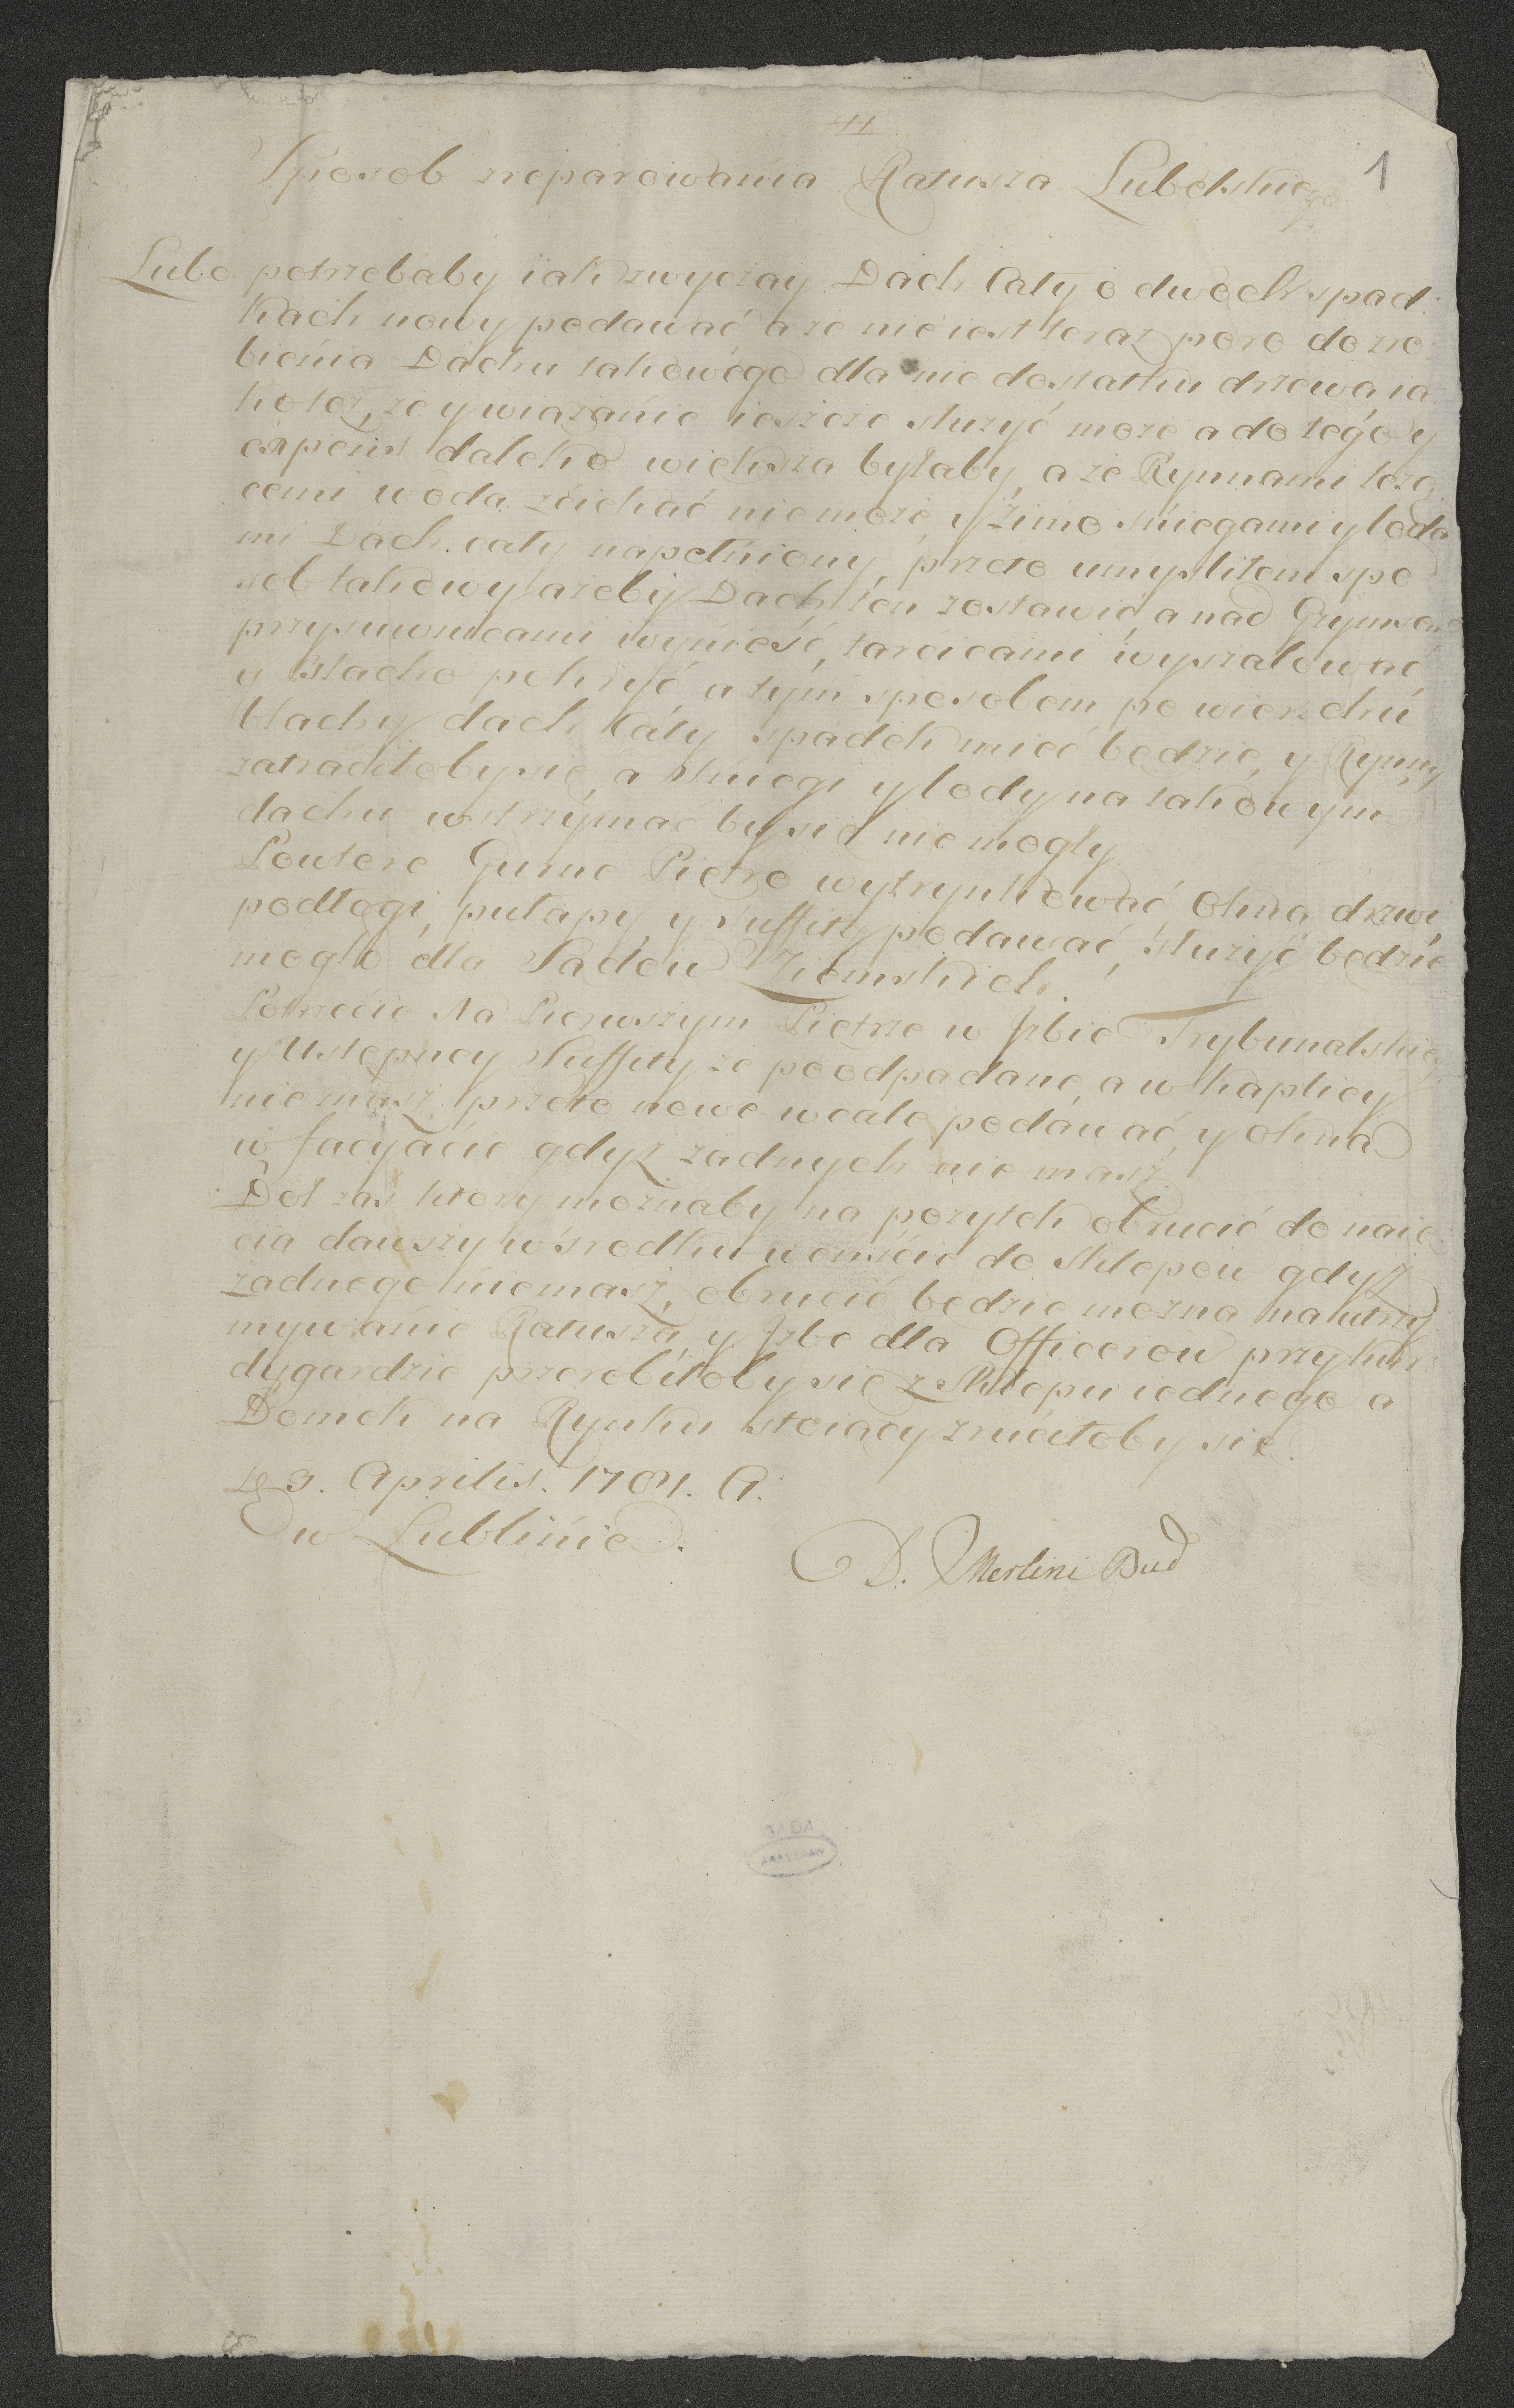 1
Sposob zreparowania Ratusza Lubelskiego
Lubo potrzebaby iak zwyczay Dach Cały o dwoch spad
kach nowy podawać a ze nie iest teraz poro do zro
bienia Dachu takowego dla nie dostatku drzewa ia
kotez, ze y wiazanie ieszcze słuzyć moze a do tego y
expens daleko wieksza byłaby, a ze Rynnami leza
cemi woda zciekać nie moze, y Zimo sniegami y loda
mi Dach cały napełniony, przeto umysliłem spo
sob takowy azeby Dach ten zostawić, a nad Gzymsem
przysuwnicami wynieść, tarcicami wyszalować
y Blacho pokryć a tym sposobem po wierzchu
blachy dach Cały spadek mieć bedzie, y Rynny
zatraciłoby sie, a sniegi y lody na takowym
dachu wstrzymać by sie nie mogły
Powtore Gurne Pietro wytrynkować Okna drzwi
podłogi, pułapy, y suffity podawać, słuzyć bedzie
mogło dla Sadow Ziemskich.
Potrzecie Na Pierwszym Pietrze w Jzbie Trybunalskiey
y Ustepney Suffity ze poodpadane, a w Kaplicy
nie masz, przeto nowe wcale podawać y Okna
w facyacie gdyz zadnych nie masz.
Doł zas ktory moznaby na pozytek obrucić do naie
cia dawszy w srodku weiście do sklepow gdyz
zadnego niemasz, obrucić bedzie mozna na utrzy
mywanie Ratusza, y Jzbe dla Officerow przy kur
dygardzie przerobiłoby sie z Sklepu iednego a
Domek na Rynku stoiacy zruciłoby sie
3. Aprilis. 1781.
w Lublinie.
D. Merlini Bud